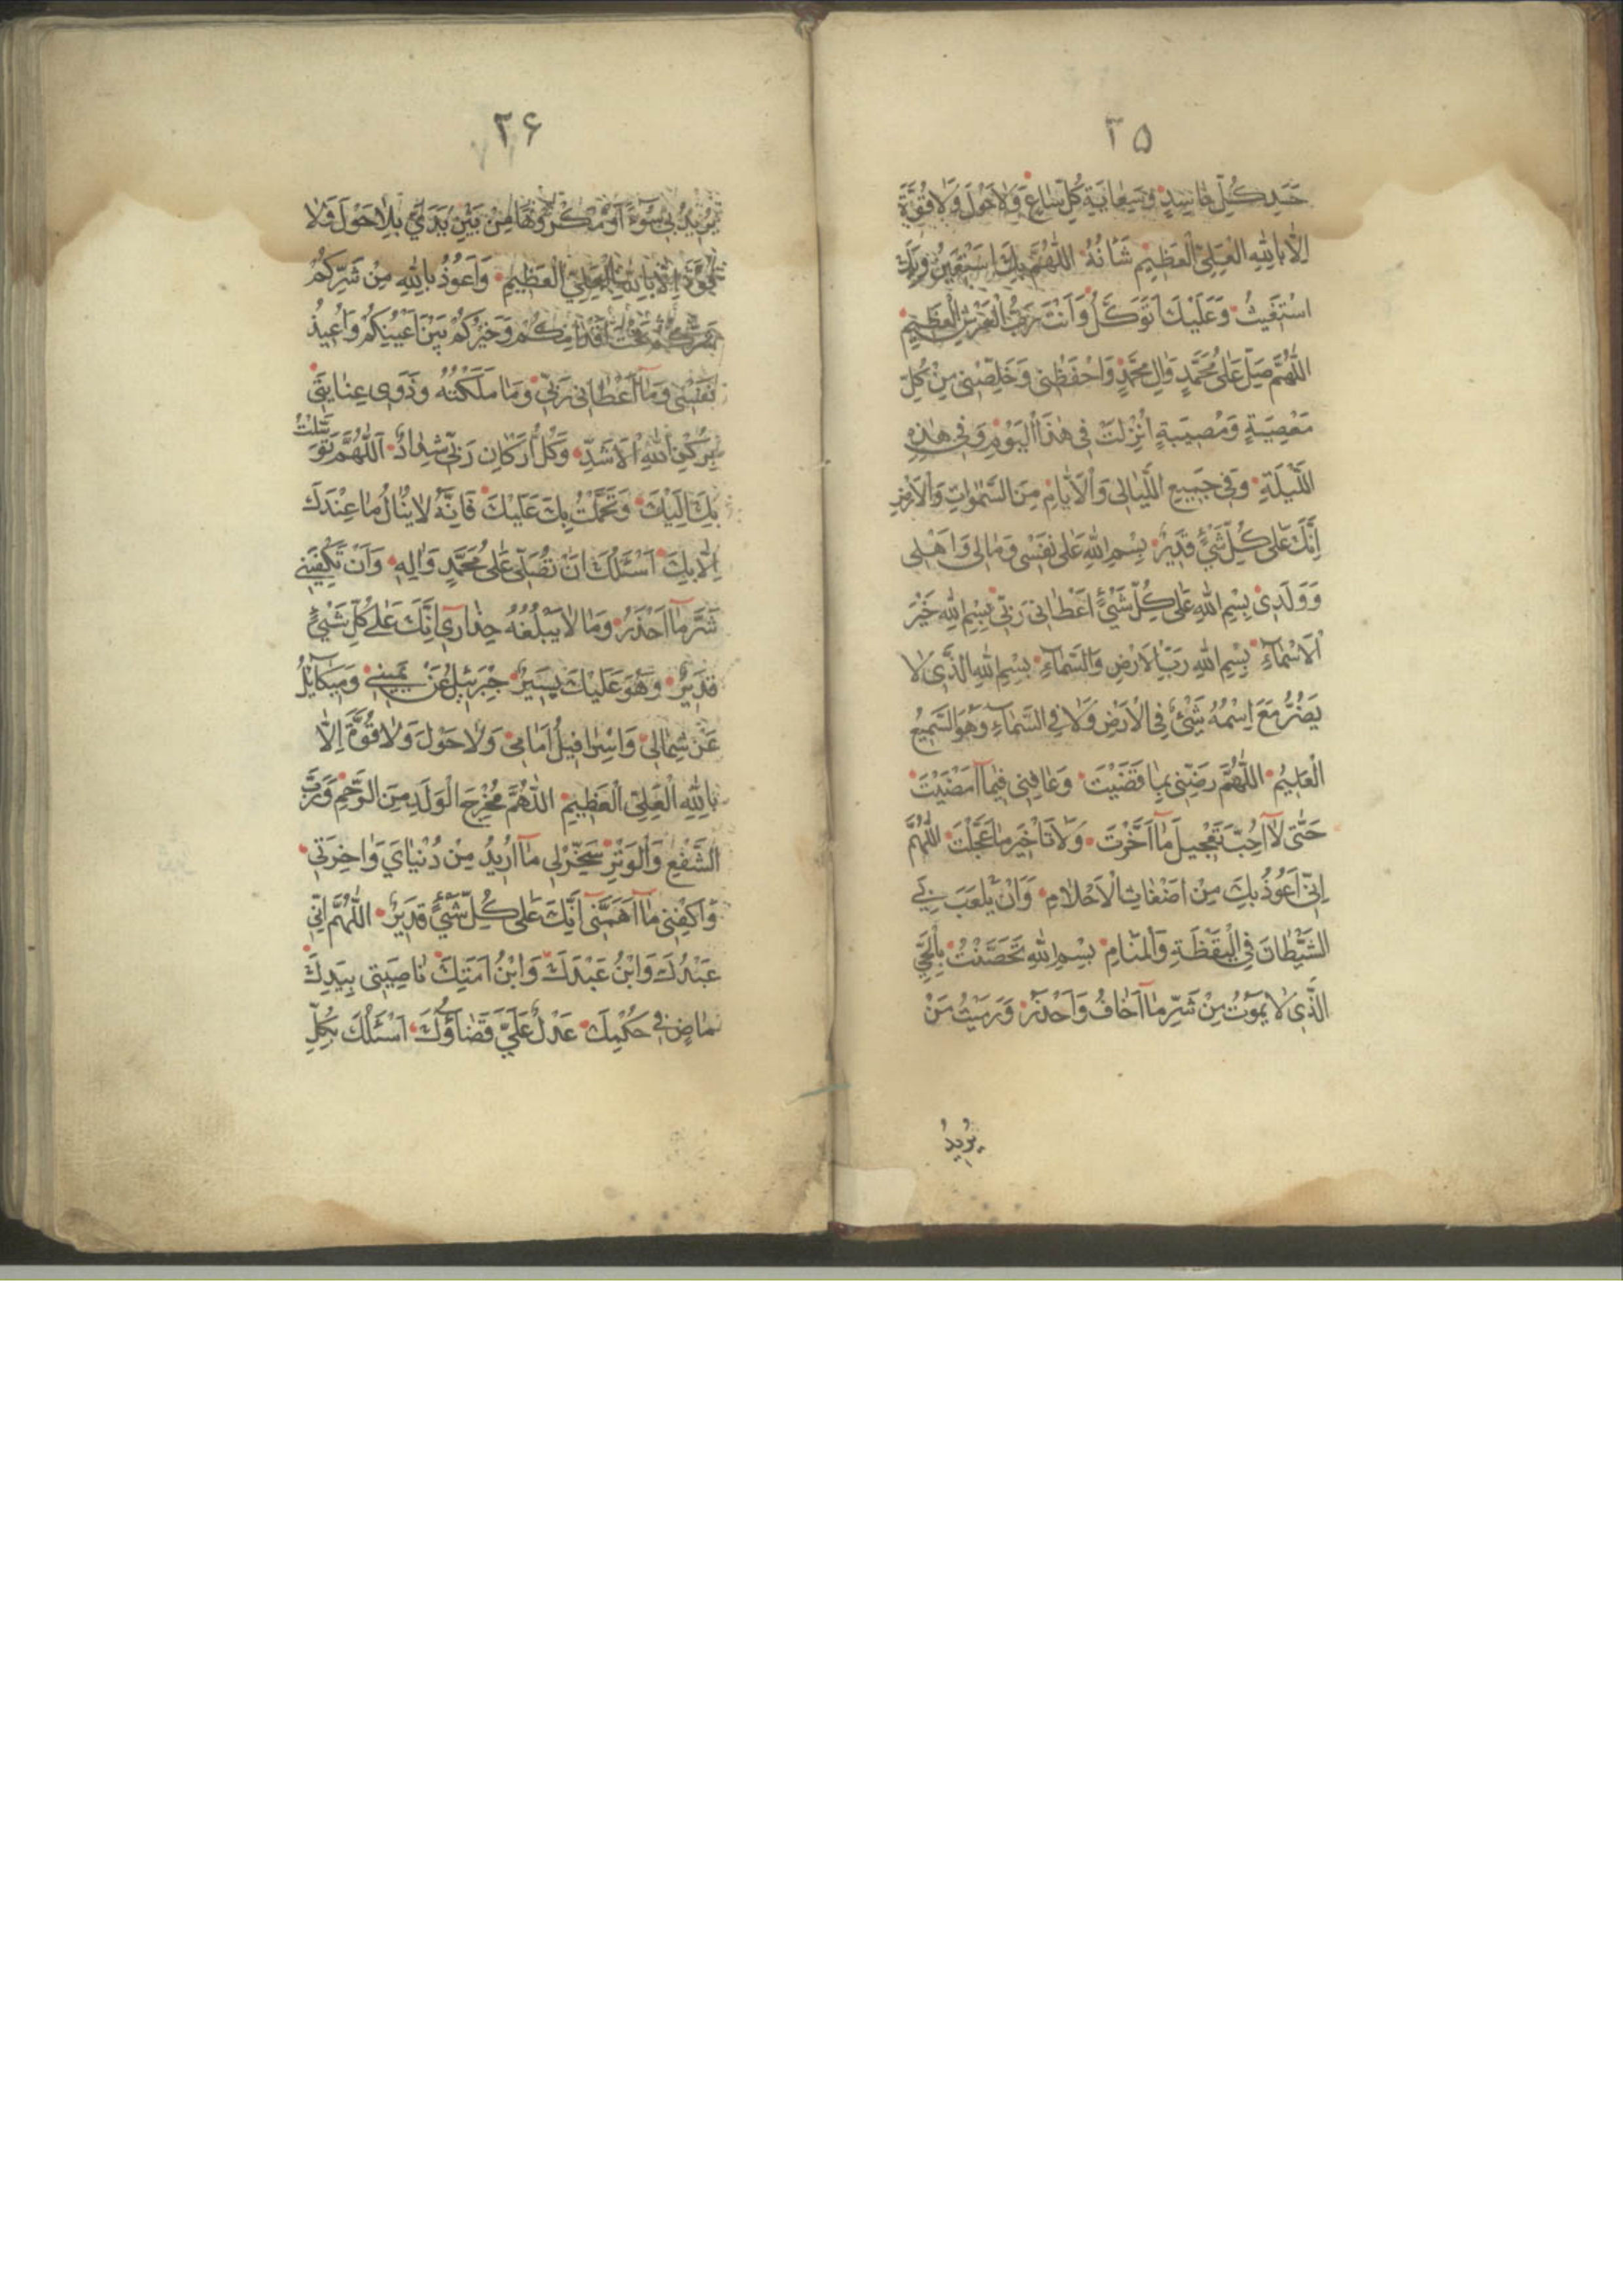 ۲۵
حَسَدِ كُلِّ حٰاسِدٍ وَسِعٰايَةِ كُلِّ سٰاعٍ وَلاٰحَوْلَ وَلاٰقُوَّةَ
اِلاّٰ بِاللّٰهِ الْعَلِىِّ الْعَظِيمِ شَأنُهُ اللّٰهُمَّ بِكَ اَسْتَعِينُ وَبِكَ
اسْتَغَيثُ وَعَلَيْكَ اَتَوَكَّلُ وَاَنْتَ رَبُّ الْعَرْشِ الْعَظِيمِ
اللّٰهُمَّ صَلِّ عَلىٰ مُحَمَّدٍ وَاٰلِ مُحَمَّدٍ وَاحْفَظْنِى وَخَلِّصْنِى مِنْ كُلِّ
مَعْصِيَةٍ وَمُصِيبَةٍ اُنْزِلَتْ فِى هٰذَا الْيَوْمِ وَفِى هٰذِهِ
اللَّيْلَةِ وَفِى جَمِيعِ اللَّيٰالِى وَالْاَيّٰامِ مِنَ السَّمٰوٰاتِ وَالْاَرْضِ
اِنَّكَ عَلىٰ كُلِّ شَىْءٍ قَدِيرٌ بِسْمِ اللّٰهِ عَلىٰ نَفْسِى وَمٰالِى وَاَهْلِى
وَوَلَدِى بِسْمِ اللّٰهِ عَلىٰ كُلِّ شَىْءٍ اَعْطٰانِى رَبِّى بِسْمِ اللّٰهِ خَيْرَ
الْاَسْمٰاءِ بِسْمِ اللّٰهِ رَبِّ الْاَرْضِ وَالسَّمٰاءِ بِسْمِ اللّٰهِ الَّذِى لاٰ
يَضُرُّ مَعَ اِسْمُهُ شَىْءٌ فِى الْاَرْضِ وَلاٰ فِى السَّمٰاءِ وَهُوَ السَّمِيعُ
الْعَلِيمُ اللّٰهُمَّ رَضِّنِى بِمٰا قَضَيْتَ وَعٰافِنِى فِيمٰا اَمْضَيْتَ
حَتّٰى لاٰ اُحِبَّ تَعْجِيلَ مٰا اَخَّرْتَ وَلاٰ تَأْخِيرَ مٰا عَجَّلْتَ اللّٰهُمَّ
اِنِّى اَعُوذُ بِكَ مِنْ اَضْغٰاثِ الْاَحْلاٰمِ وَاَنْ يَلْعَبَ بِى
الشَّيْطٰانَ فِى الْيَقْظَةِ وَالْمَنٰامِ بِسْمِ اللّٰهِ تَحَصَّنْتُ بِالْحَىِّ
الَّذِى لاٰ يَمُوتُ مِنْ شَرِّ مٰا اَخٰافُ وَاَحْذَرُ وَرَمَيْتُ مَنْ
يُرِيدُ
۲۶
يُرِيدُ بِى سُوءً اَوْ مَكْرُوهًا مِنْ بَيْنِ يَدَىَّ بِلاٰ حَوْلَ وَلاٰ
قُوَّةَ اِلاّٰ بِاللّٰهِ الْعَلِىِّ الْعَظِيمِ وَاَعُوذُ بِاللّٰهِ مِنْ شَرِّكُمْ
شَرُّكُمْ تَحْتَ اَقْدٰامِكُمْ وَخَيْرُكُمْ بَيْنَ اَعْيُنِكُمْ وَاُعِيذُ
نَفْسِى وَمٰا اَعْطٰانِى رَبِّى وَمٰا مَلَكَتْهُ وَذَوِى عِنٰايَتِى
بِرُكْنِ اللّٰهِ الْاَشَدِّ وَكُلُّ اَرْكٰانِ رَبِّى شِدٰادٌ اَللّٰهُمَّ تَوَسَّلْتُ
بِكَ اِلَيْكَ وَتَحَمَّلْتُ بِكَ عَلَيْكَ فَاِنَّهُ لاٰ يُنٰالُ مٰا عِنْدَكَ
اِلاّٰ بِكَ اَسْئَلُكَ اَنْ تُصَلِّىَ عَلىٰ مُحَمَّدٍ وَاٰلِهِ وَاَنْ تَكْفِيَنِى
شَرَّ مٰا اَحْذَرُ وَمٰا لاٰ يَبْلُغُهُ حِذٰارِى اِنَّكَ عَلىٰ كُلِّ شَىْءٍ
قَدِيرٌ وَهُوَ عَلَيْكَ يَسِيرٌ جَبْرَئِيلُ عَنْ يَمِينِى وَمِيكٰائِيلُ
عَنْ شِمٰالِى وَاِسْرٰافِيلُ اَمٰامِى وَلاٰ حَوْلَ وَلاٰ قُوَّةَ اِلاّٰ
بِاللّٰهِ الْعَلِىِّ الْعَظِيمِ اللّٰهُمَّ مُخْرِجَ الْوَلَدِ مِنَ الرَّحِمِ وَرَبَّ
الشَّفْعِ وَالْوَتْرِ سَخِّرْ لِى مٰا اُرِيدُ مِنْ دُنْيٰاىَ وَاٰخِرَتِى
وَاكْفِنِى مٰا اَهَمَّنِى اِنَّكَ عَلىٰ كُلِّ شَىْءٍ قَدِيرٌ اللّٰهُمَّ اِنِّى
عَبْدُكَ وَابْنُ عَبْدِكَ وَابْنُ اَمَتِكَ نٰاصِيَتِى بِيَدِكَ
مٰاضٍ فِىَّ حُكْمِكَ عَدْلٌ عَلَىَّ قَضٰاؤُكَ اَسْئَلُكَ بِكُلِّ